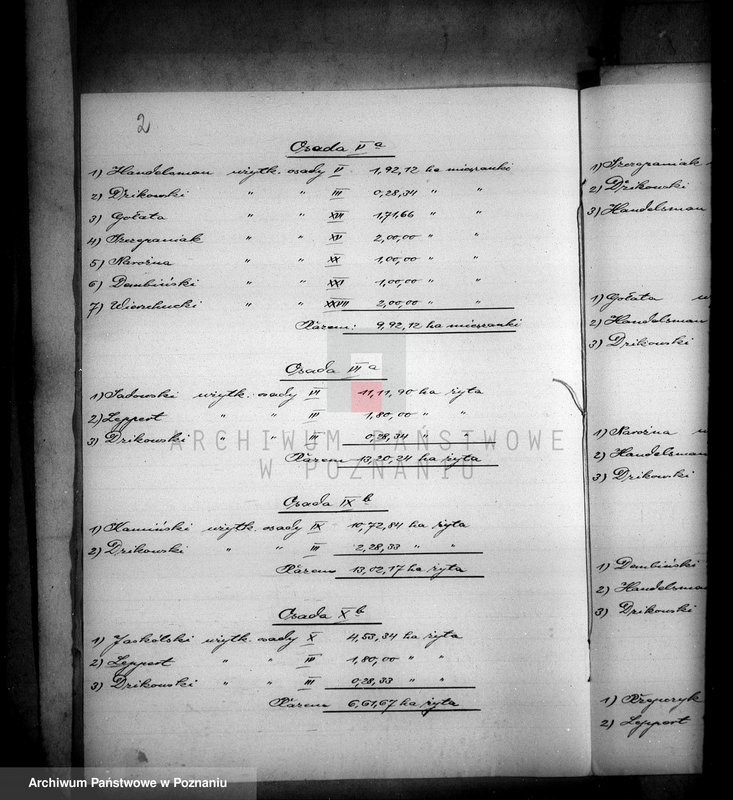 2
Osada V a
1) Handelsman użytk. osady V 1,92,12 ha mieszanki
2) Dzikowski " " III 0,28,34 " "
3) Gołata " " XVII 1,71,66 " "
4) Szczepaniak " " XV 2,00,00 " "
5) Nawożna " " XX 1,00,00 " "
6) Dembiński " " XXI 1,00,00 " "
7) Wierzbucki " " XXVII 2,00,00 " "
Razem: 9,92,12 ha mieszanki
Osada VI a
1) Sadowski użytk. osady VI 11,11,90 ha żyta
2) Leppert " " IV 1,80,00 " "
3) Dzikowski " " III 0,28,34 "
Razem 13,20,24 ha żyta
Osada IX b
1) Kamiński użytk. osady IX 10,72,84 ha żyta
2) Dzikowski " " III 2,28,33 " "
Razem 13,02,17 ha żyta
Osada X b
1) Jaskólski użytk. osady X 4,53,34 ha żyta
2) Leppert " " IV 1,80,00 " "
3) Dzikowski " " III 0,28,33 " "
Razem 6,61,67 ha żyta
1) Szczepaniak
2) Dzikowski
3) Handelsman
1) Gołata
2) Handelsman
3) Dzikowski
1) Nawożna
2) Handelsman
3) Dzikowski
1) Dembiński
2) Handelsman
3) Dzikowski
1)
2) Leppert
ARCHIWUM PAŃSTWOWE
W POZNANIU
Archiwum Państwowe w Poznaniu